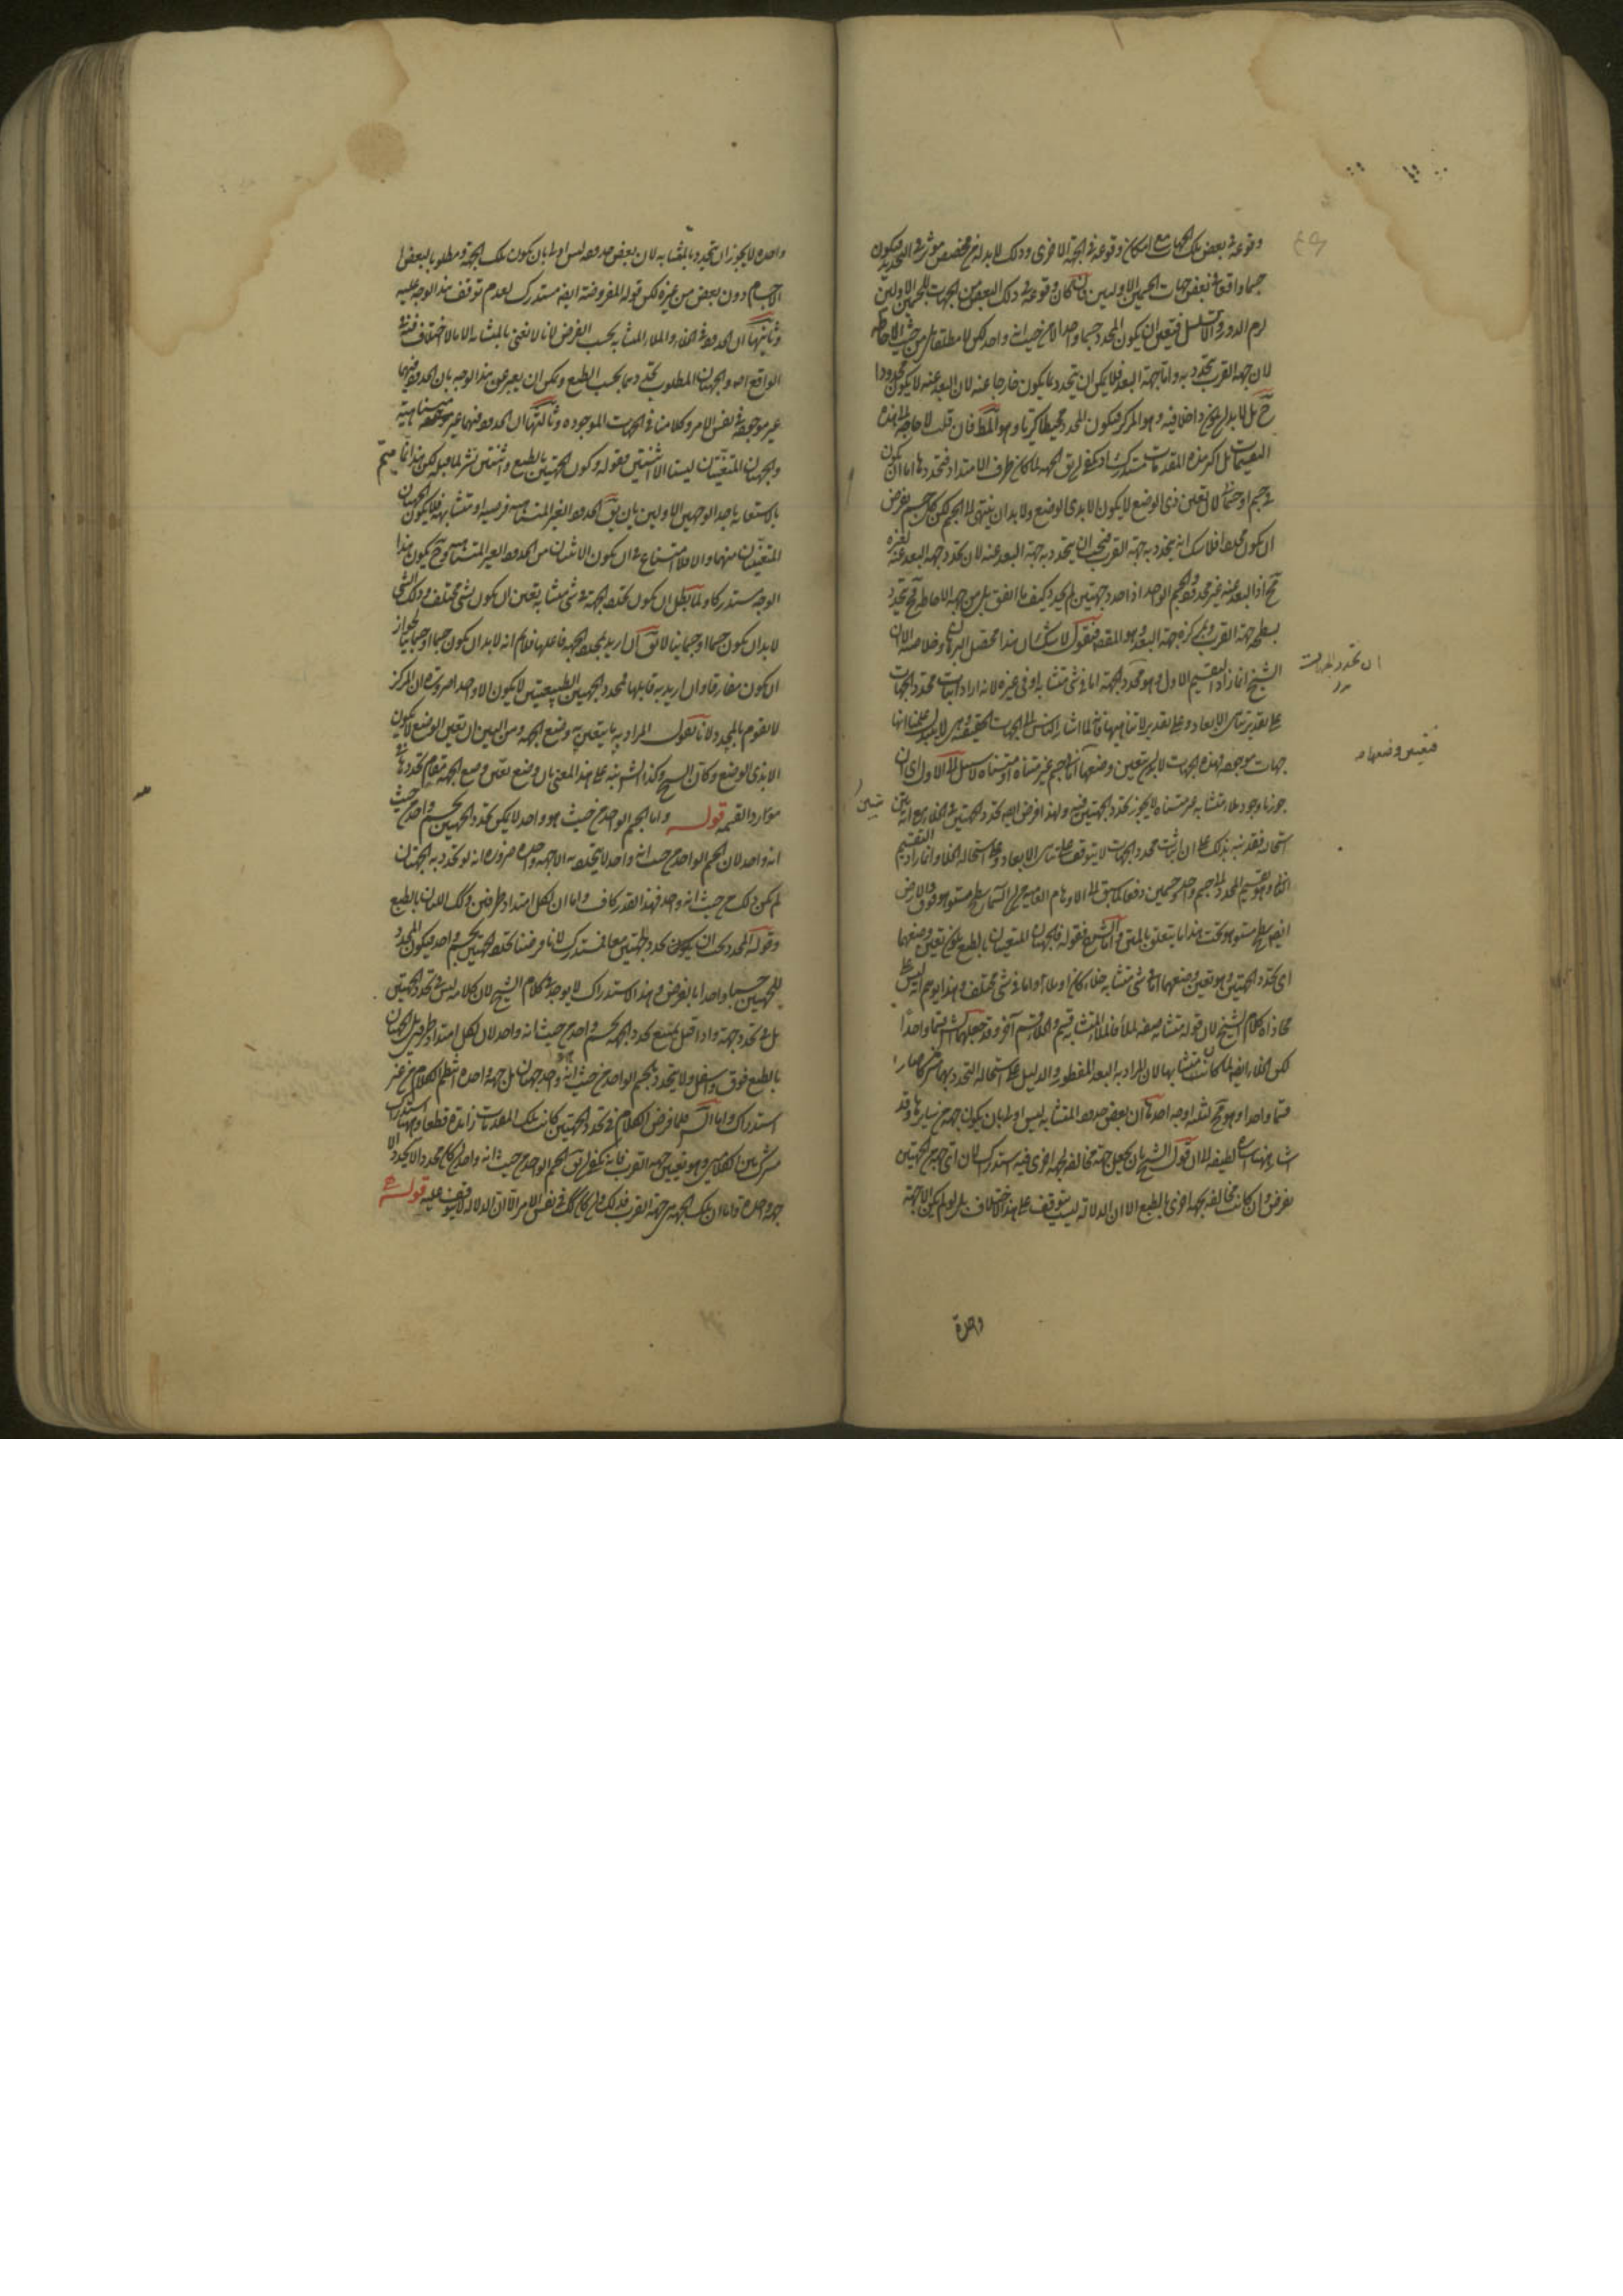 وقوعه في بعض تلك الجهات مع امكان وقوعه في الجهة الاخرى وذلك لا بد له من مخصص مؤثر في التحديد فيكون
جسما واقعا في بعض جهات الجسمين الاولين فان كان وقوعه في ذلك البعض من الجهات للجسمين الاولين
لزم الدور والا تسلسل فتعين ان يكون المحدد جسما واحدا لا من حيث انه واحد لكن لا مطلقا بل من حيث الاحاطة
لان جهة القرب يتحدد به واما جهة البعد فلا يمكن ان يتحدد بما يكون خارجا عنه لان البعد عنه لا يكون محدودا
ح بل لا بد ان يكون داخلا فيه وهو المركز فيكون المحدد محيطا كريا وهو المط فان قلت لا حاجة الى هذه
التقسيمات بل اكثر هذه المقدمات مستدرك اذ يكفي ان يق الجهة لما كان طرف الامتداد فتحددها اما ان يكون
في جسم او جسماني لان تعين ذي الوضع لا يكون الا بذي الوضع ولا بد ان ينتهي الى الجسم لكن كل جسم يفرض
ان يكون محددا فلا شك انه يتحدد به جهة القرب فيجب ان يتحدد به جهة البعد عنه لان تحدد جهة البعد عنه لغيره
مح اذ البعد عنه غير محدود والجسم الواحد اذا حدد جهتين لم يحدد كيف ما اتفق بل من جهة الاحاطة مح تحدد
بسطحه جهة القرب وبمركزه جهة البعد وهو المقصد فنقول لا شك ان هذا محصل البرهان وخلاصته الا ان
الشيخ انما زاد التقسيم الاول وهو محدد الجهة اما في شي متشابه او في غيره لانه اراد اثبات محدد الجهات
ان تحدد الجهات
على تقدير تناهي الابعاد وعلى تقدير لا تناهيها فانه لما اشار الناس الى الجهات الحقيقية وهي لا تتبدل علمنا انها
جهات موجودة فهذه الجهات لا بد من تعين وضعها اما في جسم غير متناه او متناه لا سبيل الى الاول اي ان
فتعين وضعها
جوزنا وجود ملاء متشابه غير متناه لا يجوز تحدد الجهتين فيه ولهذا فرض ايضا تحدد الجهتين في الخلاء مع انه يتبين
استحالته فقد نبه بذلك على ان اثبات محدد الجهات لا يتوقف على تناهي الابعاد وعلى استحالة الخلاء وانما زاد التقسيم
الثاني وهو تقسيم المحدد الى جسم واحد وجسمين دفعا لما سبق الى الاوهام العامية من ان السماء سطح مستو هو فوق والارض
ايضا سطح مستو هو تحت هذا ما يتعلق بالمتن واما الشرح فقوله فالجهتان المتعينتان بالطبع يكون تعين وضعهما
اي تحدد الجهتين وهو تعين وضعهما اما في شي متشابه خلاء كان او ملاء او اما في شي مختلف وهذا يوهم انه ليس على
محاذاة كلام الشيخ لان قوله متشابه صفة للملأ فالملأ المتشابه قسم والخلاء قسم آخر وقد جعلهما الش قسما واحدا
لكن الخلاء ايضا لما كان متشابها لان المراد به البعد المفطور والدليل على استحالة التحدد بهما مشترك صارا
قسما واحدا وهو مح لثلثة اوجه احدها ان بعض حدود المتشابه ليس اولى بان يكون جهة من سايرها وقد
اشار ههنا اشارة لطيفة الى ان قول الشيخ بان يجعل جهة مخالفة لجهة اخرى فيه استدراك لان اي جهة من الجهتين
تفرض وان كانت مخالفة لجهة اخرى بالطبع الا ان الدلالة ليست يتوقف على هذا الاختلاف بل لو لم يكن الا جهة
واحدة
واحدة لا يجوز ان تتحدد بالمتشابه لان بعض حدوده ليس اولى بان يكون تلك الجهة ومطلوبا لبعض
الاجسام دون بعض من غيره لكن قوله المفروضة ايضا مستدرك لعدم توقف هذا الوجه عليه
وثانيها ان الحدود في الخلاء والملاء المتشابه بحسب الفرض لانا لا نعني بالمتشابه الا ما لا اختلاف فيه في
الواقع اصلا والجهتان المطلوب تحددهما بحسب الطبع ويمكن ان يعبر عن هذا الوجه بان الحدود فيهما
غير موجودة في نفس الامر وكلامنا في الجهات الموجودة وثالثها ان الحدود فيهما غير متناهية
والجهتان المتعينتان ليستا الا اثنتين فقوله وكون الجهتين بالطبع واثنتين نشر لما قبله لكن هذا انما يتم
بالاستعانة باحد الوجهين الاولين بان يق الحدود الغير المتناهية فرضية او متشابهة فلا يكون الجهتان
المتعينتان منهما والا فلا امتناع في ان يكون الاثنتان من الحدود الغير المتناهية وح يكون هذا
الوجه مستدركا ولما بطل ان يكون تحدد الجهة في شي متشابه تعين ان يكون بشي مختلف وذلك الشي
لا بد ان يكون جسما او جسمانيا لا يق ان اريد بمحدد الجهة فاعلها فلا نم انه لا بد ان يكون جسما او جسمانيا لجواز
ان يكون مفارقا وان اريد به قابلها فمحدد الجهتين الطبيعيتين لا يكون الا واحدا ضرورة ان المركز
لا يقوم بالمحدد لانا نقول المراد به ما يتعين به وضع الجهة ومن البين ان تعين الوضع لا يكون
الا بذي الوضع وكان الشيخ وكذا الش نبه على هذا المعنى بان وضع تعين وضع الجهة مقام تحددها في
موارد القسمة قوله واما الجسم الواحد من حيث هو واحد لا يمكن تحدد الجهتين بجسم واحد من حيث
انه واحد لان الجسم الواحد من حيث انه واحد لا يتحدد به الا جهة واحدة ضرورة انه لو تحدد به الجهتان
لم يكن ذلك من حيث انه واحد فهذا القدر كاف واما ان لكل امتداد طرفين وذلك اللتان بالطبع
وقوله المحدد يجب ان يكون يحدد جهتين معا فمستدرك لانا فرضنا تحدد الجهتين بجسم واحد فيكون المحدد
للجهتين جسما واحدا بالفرض وهذا الاستدراك لا يوجد في كلام الشيخ لان كلامه ليس في تحدد الجهتين
بل في تحدد جهة واذا قيل يمتنع تحدد الجهة بجسم واحد من حيث انه واحد لان لكل امتداد طرفين الجهتان
بالطبع فوق واسفل ولا يتحدد بالجسم الواحد من حيث انه واحد جهتان بل جهة واحدة انتظم الكلام من غير
استدراك واما الش فلما فرض الكلام في تحدد الجهتين كانت تلك المقدمات زائدة قطعا وههنا استدراك
مشترك بين الكلامين وهو تعيين جهة القرب فانه يكفي ان يق الجسم الواحد من حيث انه واحد ان كان محددا لا يحدد الا
جهة واحدة واما ان تلك الجهة هي جهة القرب فذلك وان كان كذلك في نفس الامر الا ان الدلالة لا يتوقف عليه قوله